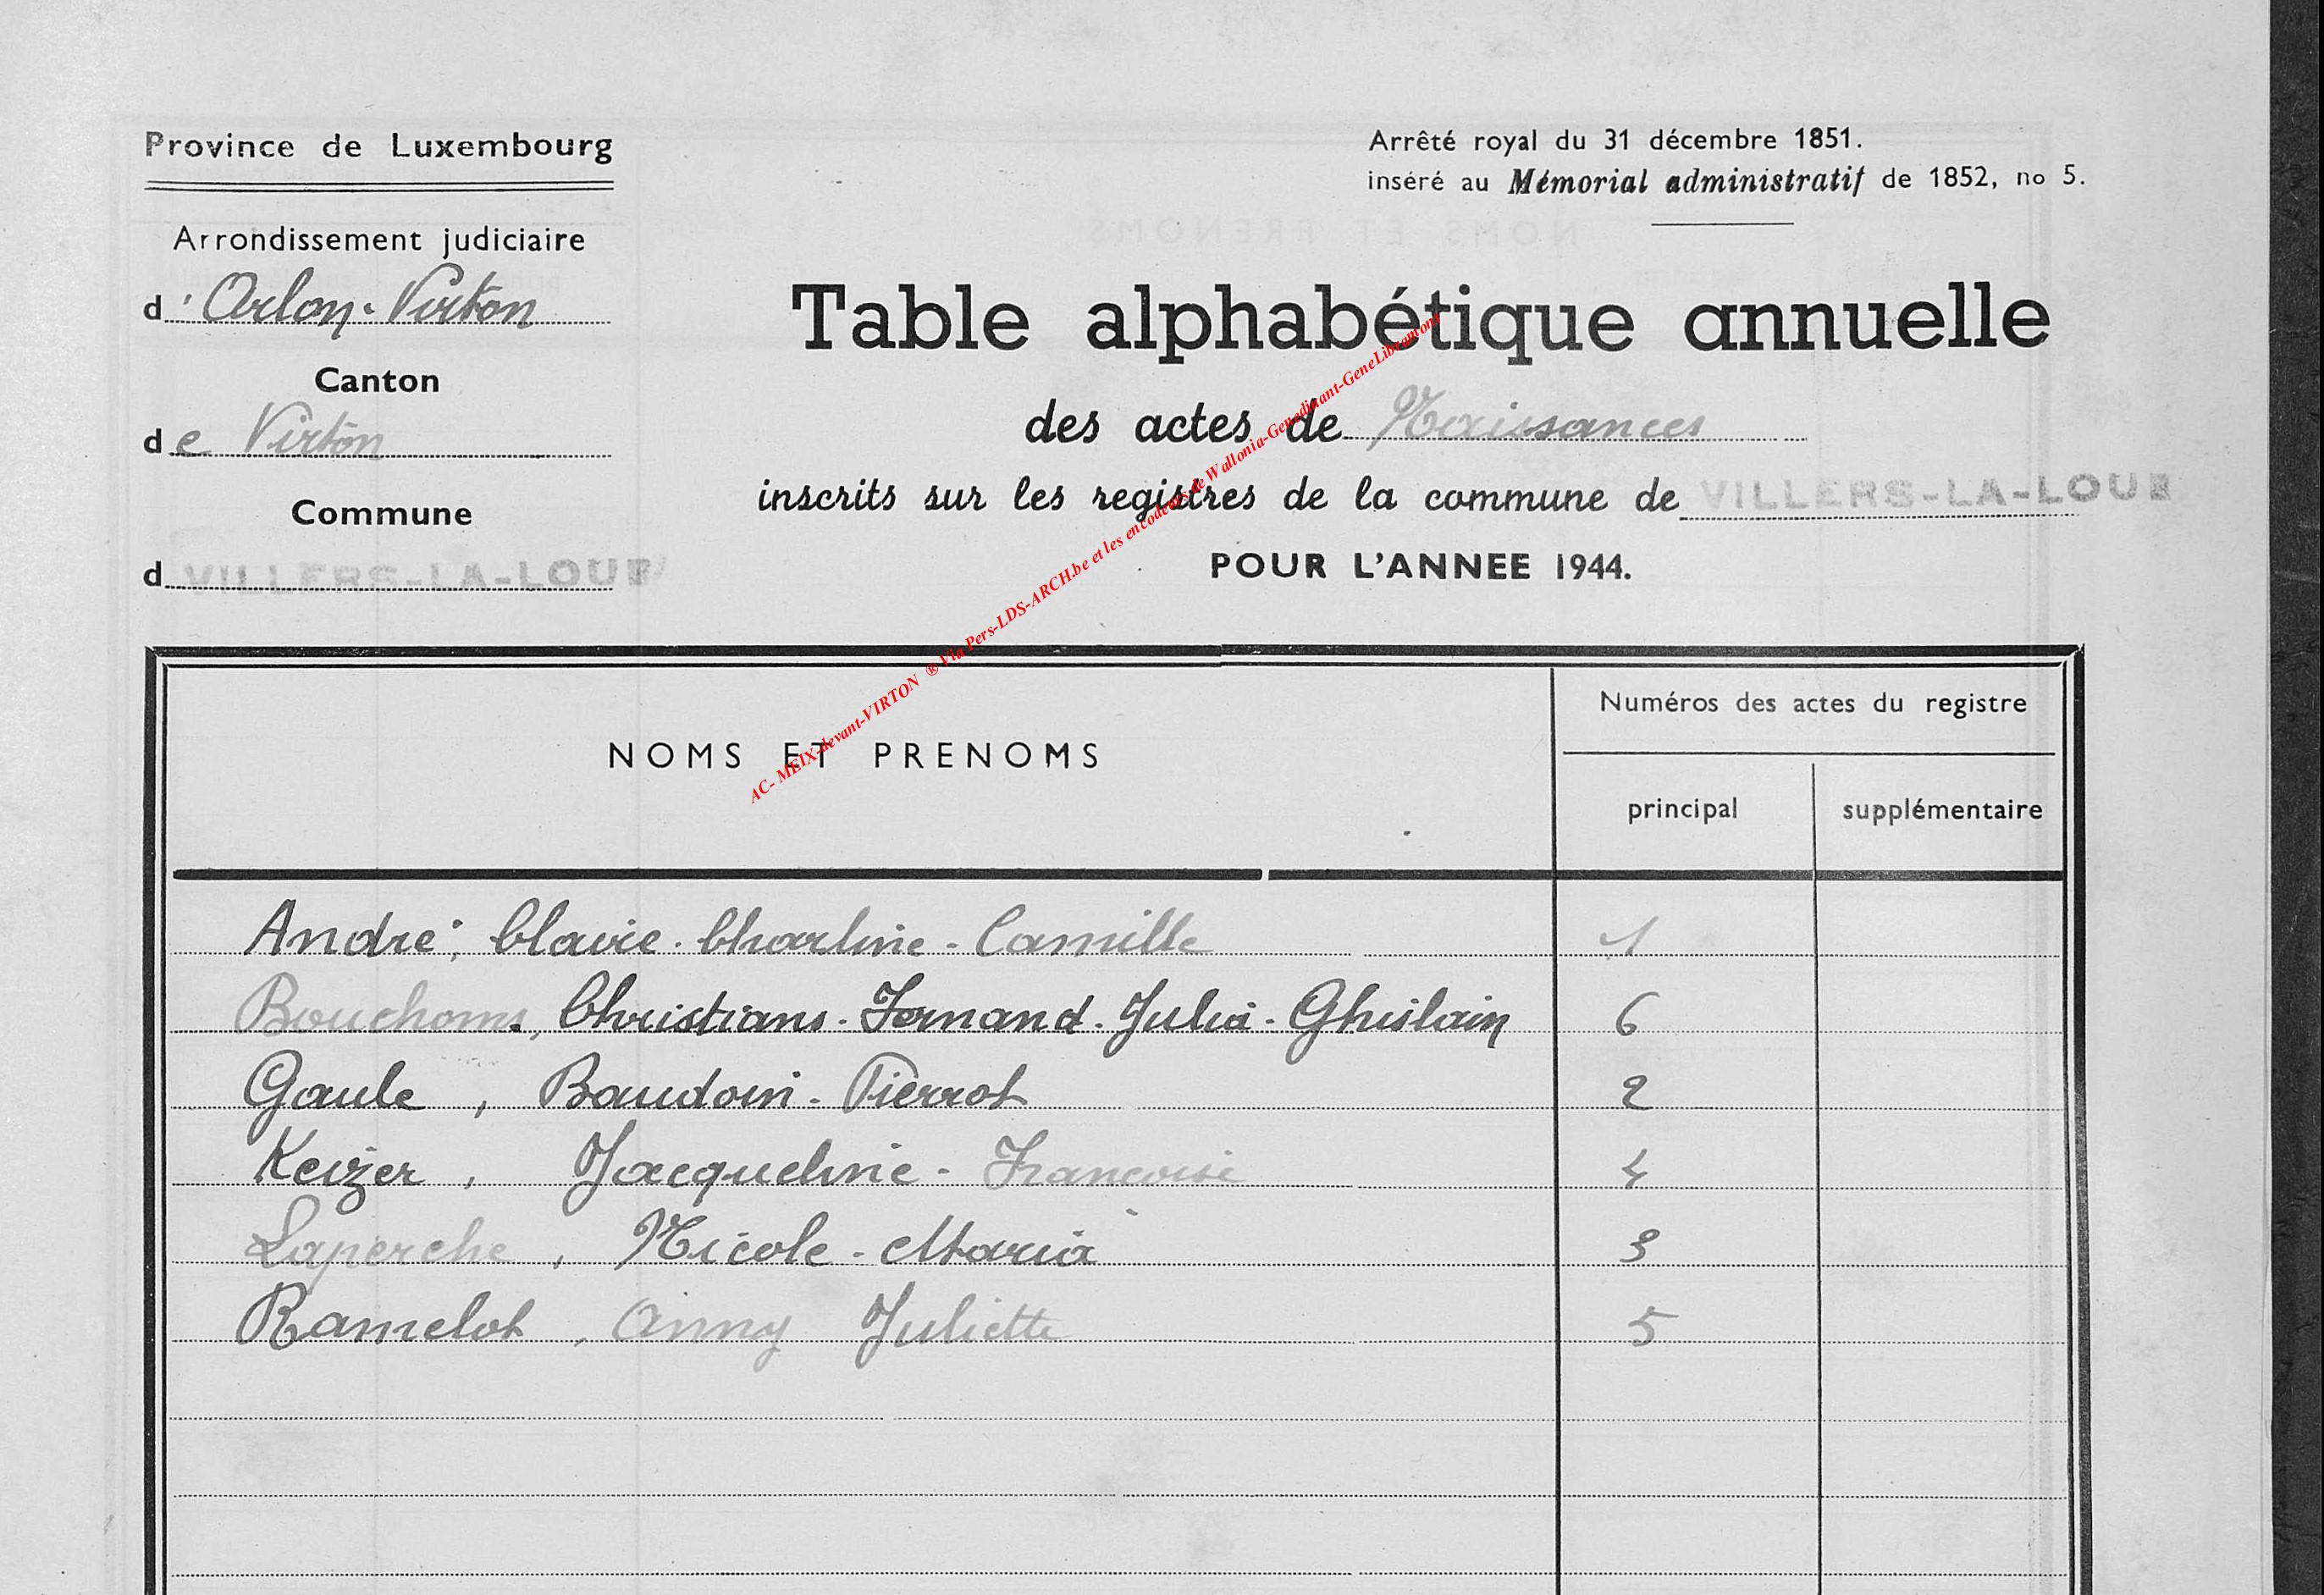 Province de Luxembourg
Arrêté royal du 31 décembre 1851.
inséré au Mémorial administratif de 1852, no 5.
Arrondissement judiciaire
d'Arlon-Virton
Canton
de Virton
Commune
d VILLERS-LA-LOUE
Table alphabétique annuelle
des actes de Naissances
inscrits sur les registres de la commune de VILLERS-LA-LOUE
POUR L'ANNEE 1944.
AC- MEIX-devant-VIRTON ® Via Pers-LDS-ARCH.be et les encodeurs de Wallonia-Genedinant-GeneLibramont
NOMS ET PRENOMS
Numéros des actes du registre
principal
supplémentaire
André, Clavie - Charline - Camille 1
Bouchoms, Christiane - Fernand - Julia - Ghislain 6
Gaule, Baudoin - Pierrot 2
Keizer, Jacqueline - Françoise 4
Laperche, Nicole - Maria 3
Ramelot, Anny Juliette 5